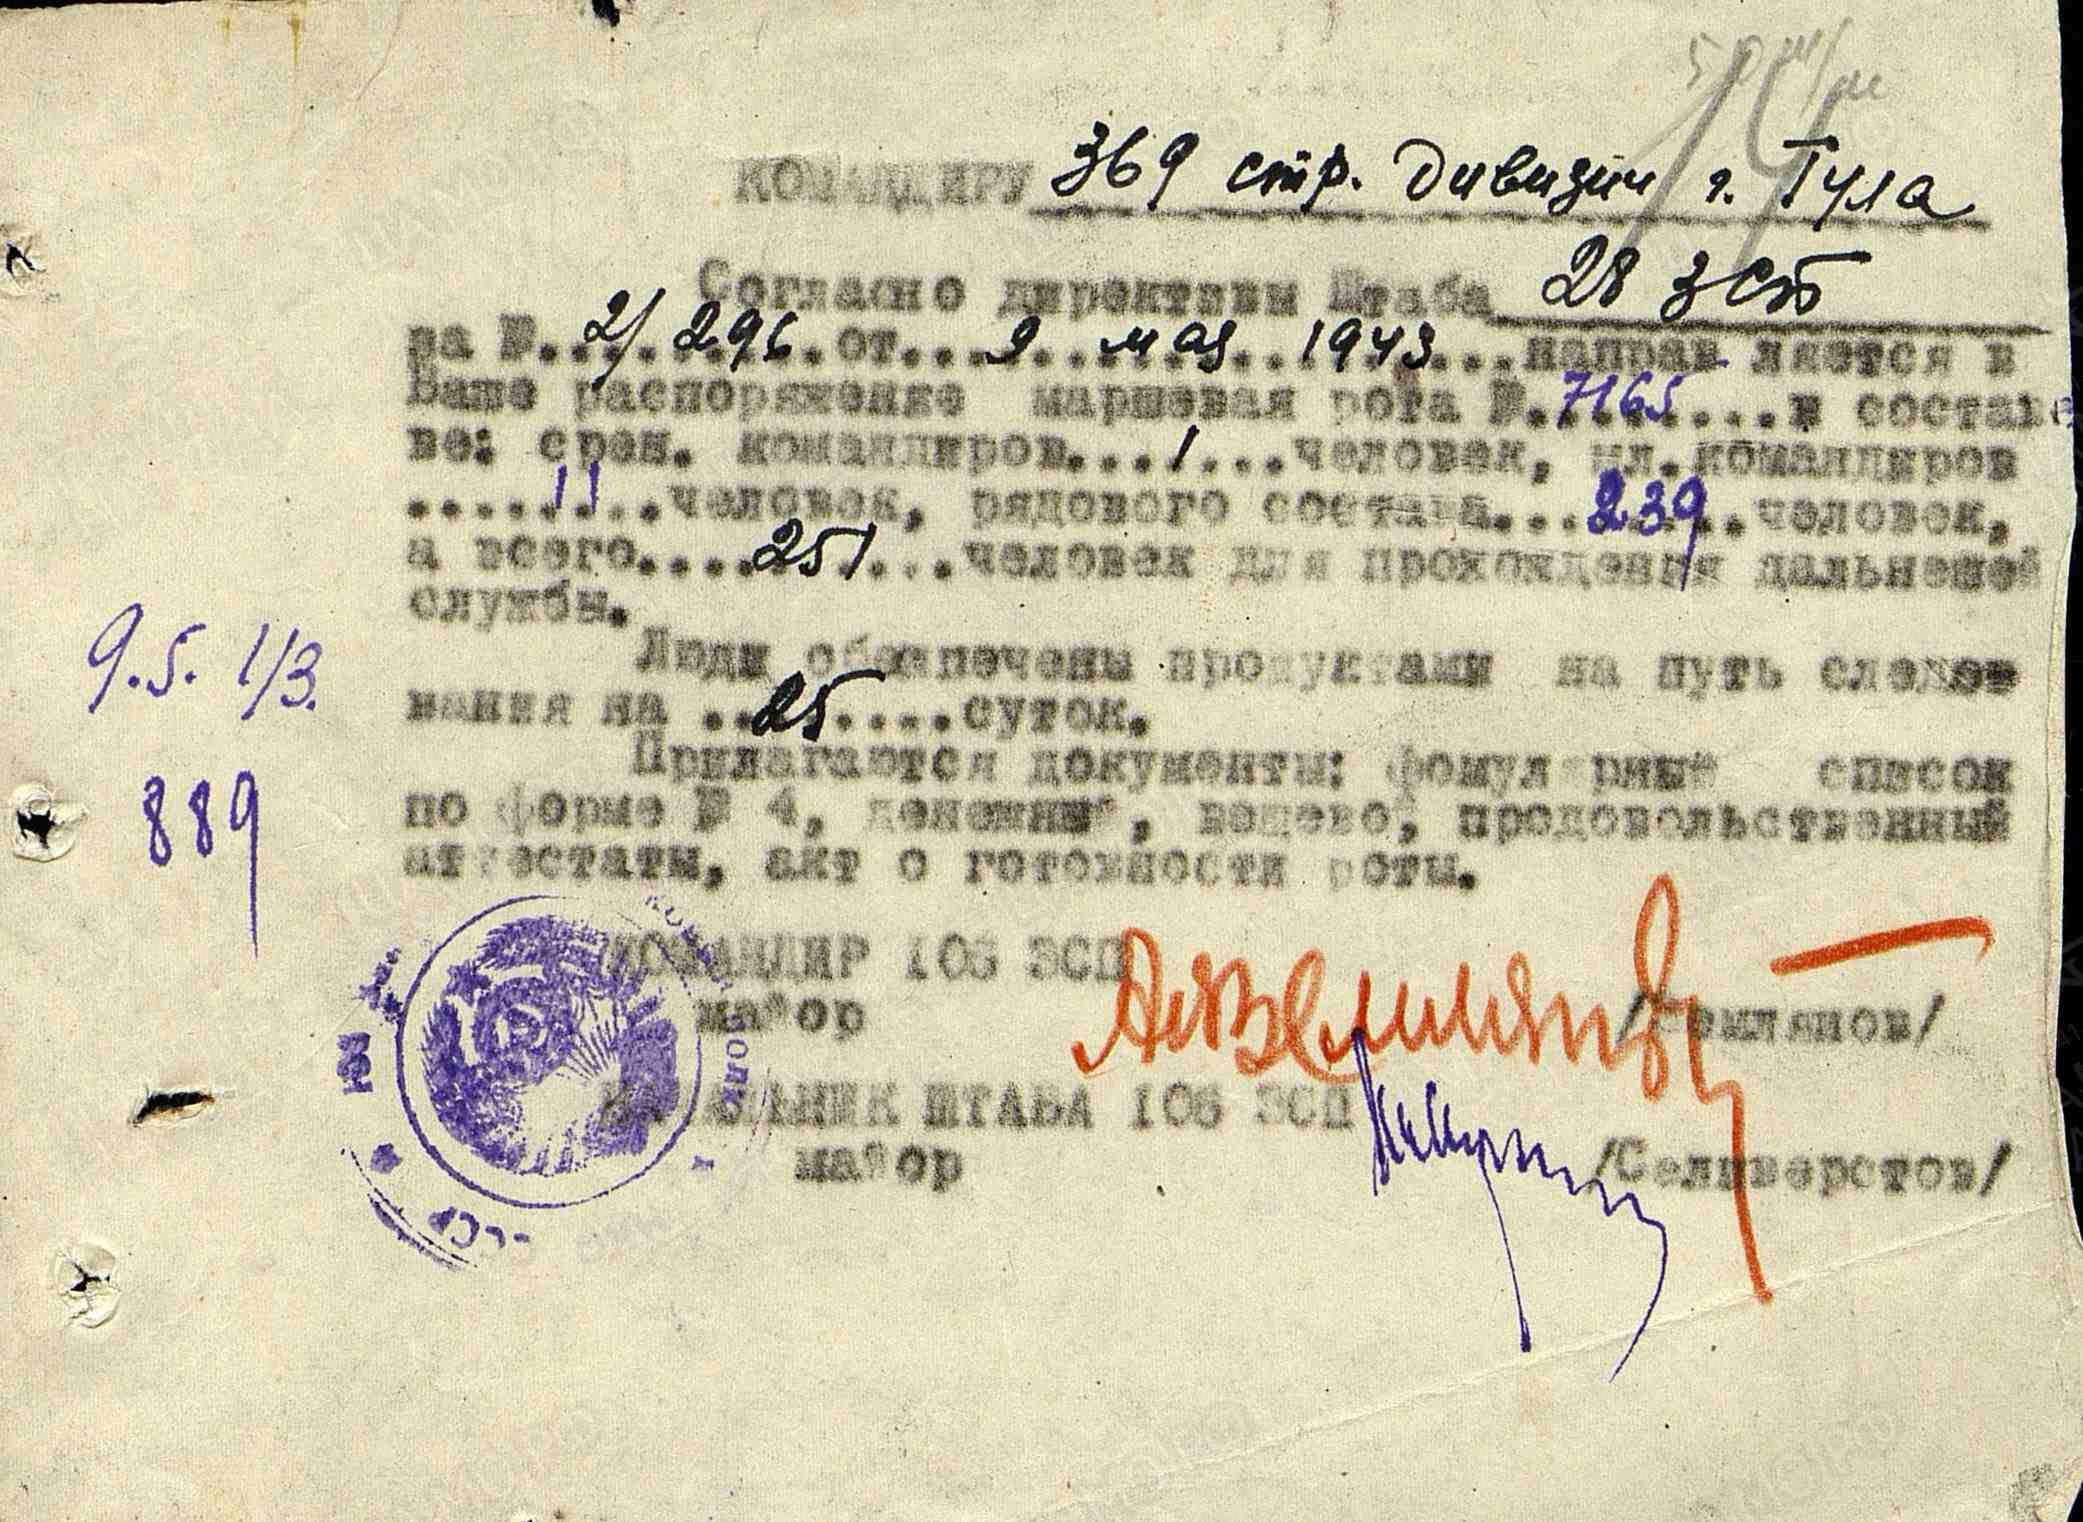 КОМАНДИРУ 369 стр. дивизии г. Тула
Согласно директивы Штаба 28 зсб
за №. 2/296 от 9 мая 1943 направляется в
Ваше распоряжение маршевая рота №. 7165 в составе
ве: сред. командиров...1...человек, мл.командиров
.......11..человек, рядового состава...239..человек,
а всего....251...человек для прохождения дальнешей
службы.
Люди обеспечены продуктами на путь следо
вания на ..25....суток.
Прилагаются документы: фомулярный список
по форме № 4, денежный, вещевой, продовольственный
аттестаты, акт о готовности роты.
9.5. 1/3.
889
КОМАНДИР 106 ЗСП
майор /Земляков/
НАЧАЛЬНИК ШТАБА 106 ЗСП
майор /Селиверстов/